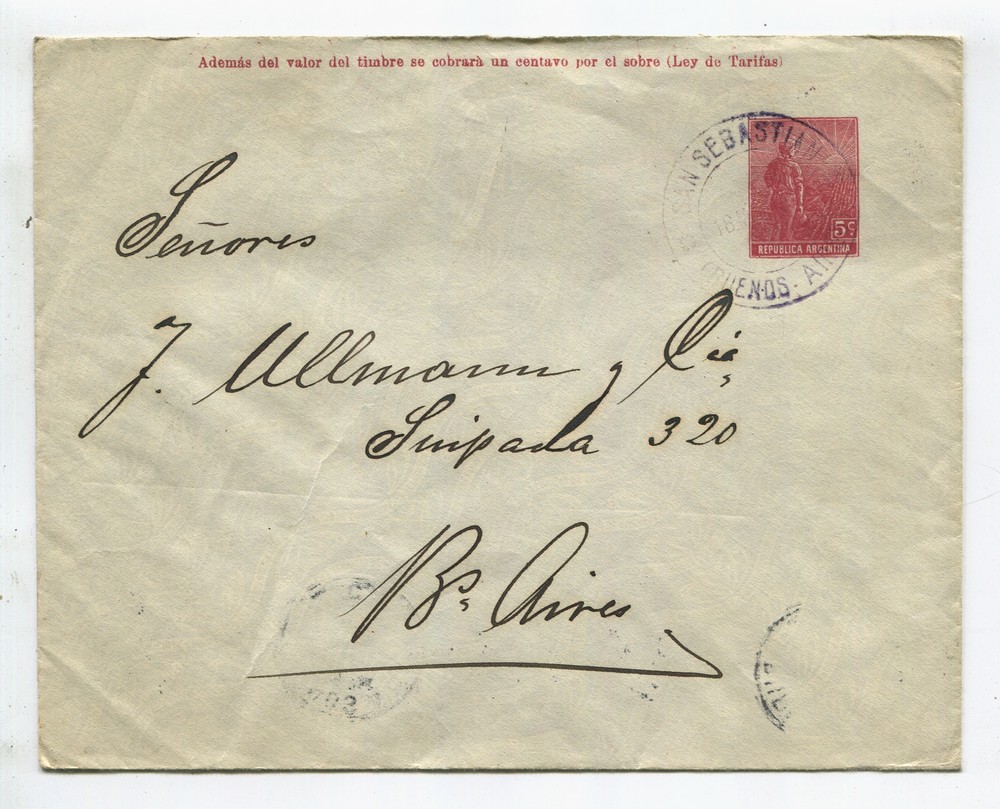 Además del valor del timbre se cobrarà un centavo por el sobre (Ley de Tarifas)
SAN SEBASTIAN
18
5c
REPUBLICA ARGENTINA
BUENOS · AI
Señores
J. Ullmann y Cía
Suipacha 320
Bs. Aires